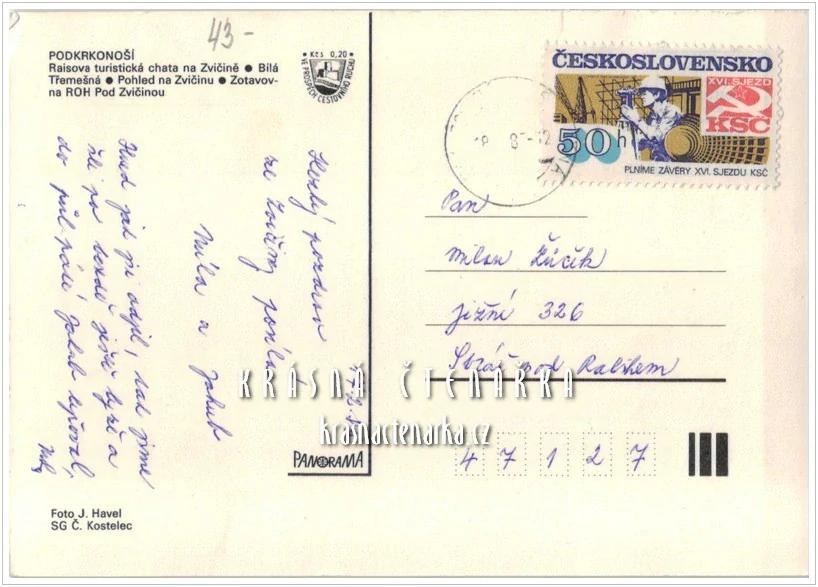 43-
PODKRKONOŠÍ
Raisova turistická chata na Zvičině ● Bílá
Třemešná ● Pohled na Zvičinu ● Zotavov-
na ROH Pod Zvičinou
Kčs 0,20
VE PROSPĚCH CESTOVNÍHO RUCHU
ČESKOSLOVENSKO
XVI. SJEZD
KSČ
50 h
PLNÍME ZÁVĚRY XVI. SJEZDU KSČ
Hezký pozdrav
ze Zvičiny posílá
Míla a Jakub
Hned jak jsi odjel, tak jsme
šli po
do půl páté Jakub
Pan
Milan Žúčik
Jižní 326
Stráž pod Ralskem
47127
KRÁSNÁ ČTENÁŘKA
krasnactenarka.cz
PANORAMA
Foto J. Havel
SG Č. Kostelec